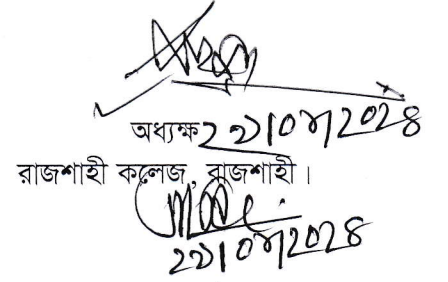 অধ্যক্ষ ২৯|০৭|২০২৪
রাজশাহী কলেজ, রাজশাহী।
২৯|০৭|২০২৪